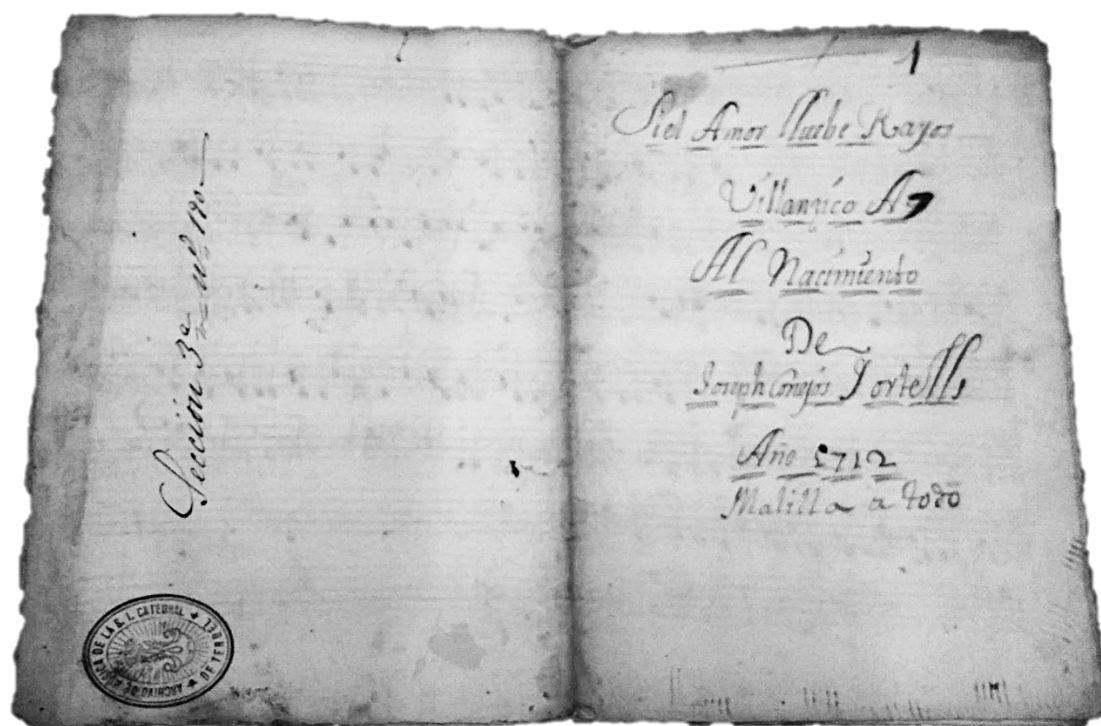 Sección 3ª nº 180
ARCHIVO DE MÚSICA DE LA S. I. CATEDRAL
DE TERUEL
1
Si el Amor lluebe Rayos
Villançico A 7
Al Nacimiento
De
Joseph Conejos Jortells
Año 1712
Malilla a todo